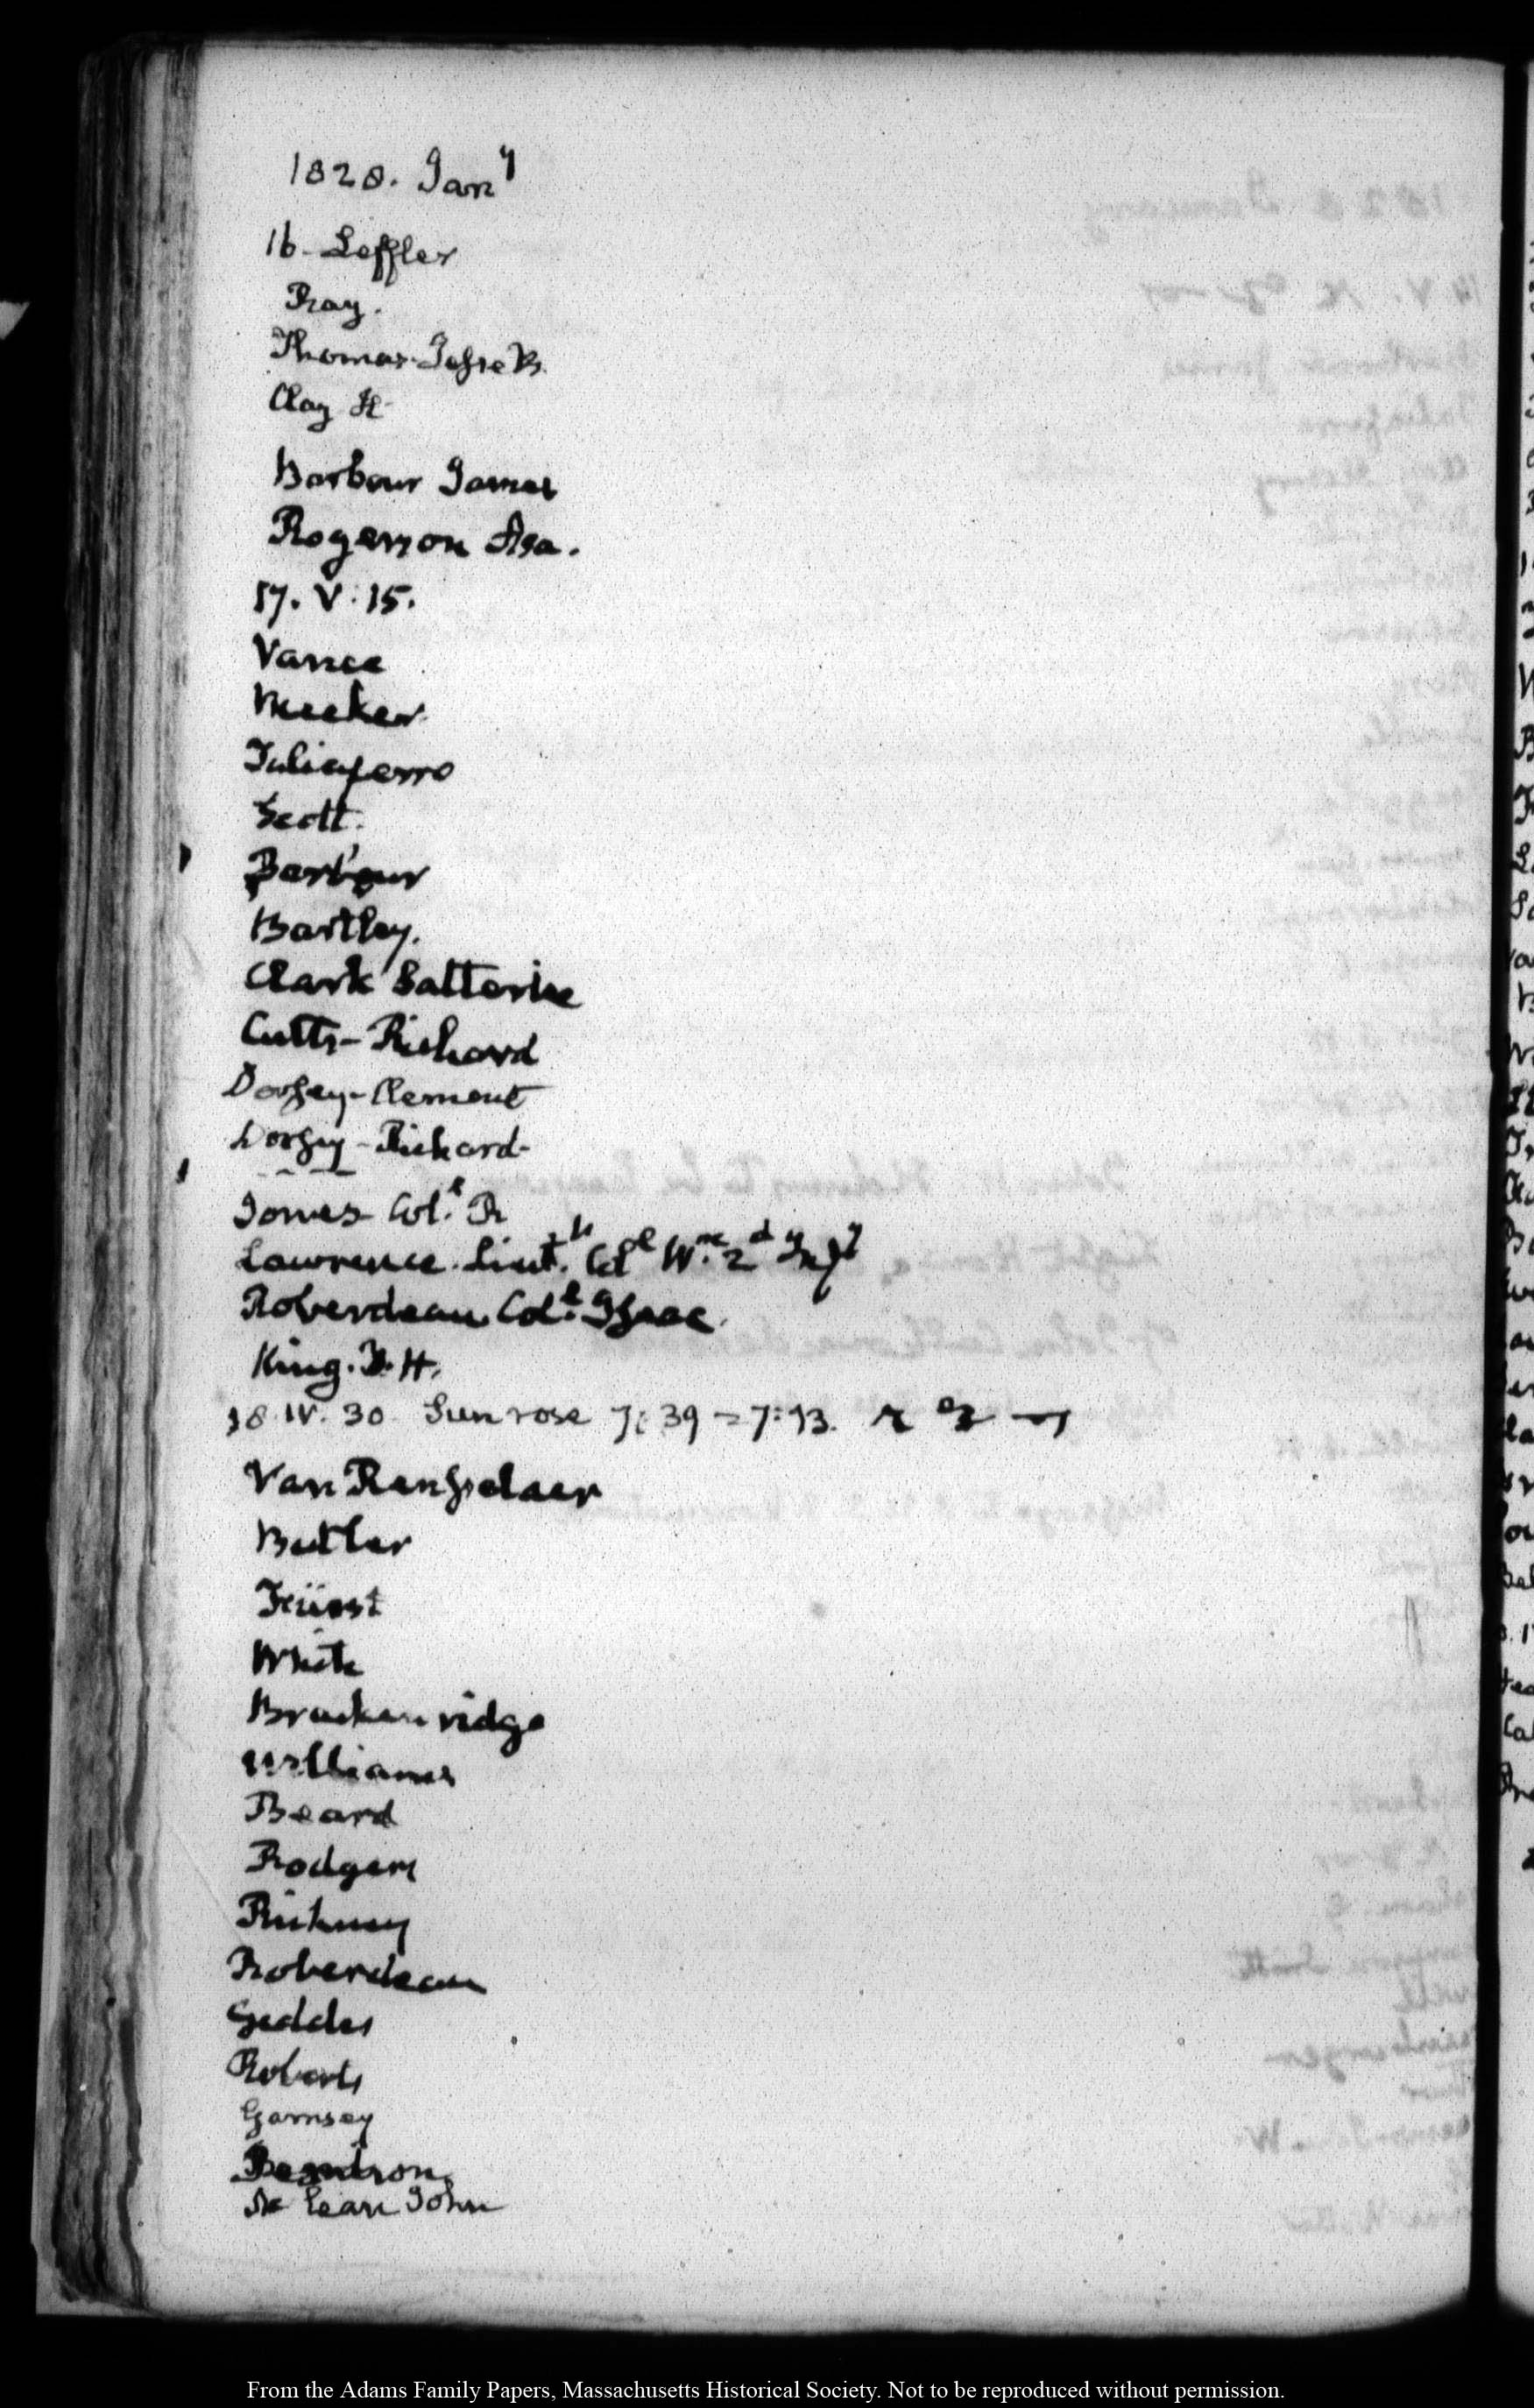 1828. Jan^y
16- Leffler
Ray.
Thomas-Jesse B.
Clay H-
Barbour James
Rogerson Asa.
17. V:15.
Vance
Meeker
Taliaferro
Scott.
Barbour
Bartley.
Clark Satterlee
Cutts-Richard
Dorsey-Clement
Dorsey-Richard-
Jones Col.^l R
Lawrence. Lieut.^t Col^l W^m. 2^d Inf^y
Roberdeau Col.^l Isaac
King. H.
18. IV. 30. Sun rose 7:39 = 7:13.
Van Rensselaer
Butler
Fürst
White
Breckenridge
Williams
Beard
Rodgers
Pinkney
Roberdeau
Geddes
Roberts
Garnsey
M^c Lean John
From the Adams Family Papers, Massachusetts Historical Society. Not to be reproduced without permission.